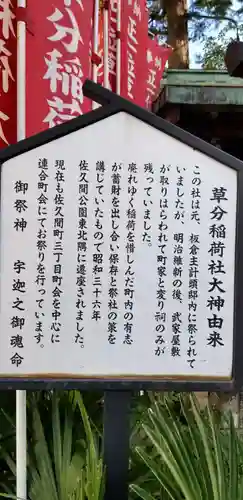 草分稲荷社大神由来
この社は元、板倉主計頭邸内に祭られて
いましたが、明治維新の後、武家屋敷
が取りはらわれて町家と変り祠のみが
残っていました。
廃れゆく稲荷を惜しんだ町内の有志
が蓄財を出し合い保存と祭社の策を
講じていたもので昭和三十六年
佐久間公園東北隅に遷座されました。
現在も佐久間町三丁目町会を中心に
連合町会にてお祭りを行っています。
御祭神 宇迦之御魂命
草分稲荷
正一